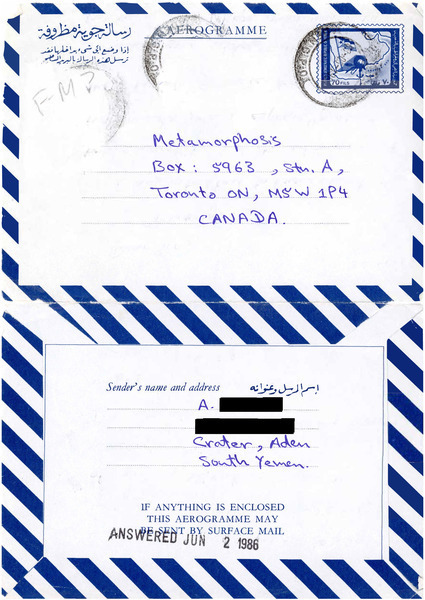 رسالة جوية مظروفة
إذا وضع أي شيء بداخلها فقد
ترسل هذه الرسالة بالبريد
AEROGRAMME
70 FILS
Metamorphosis
Box: 5963, Stn. A,
Toronto ON, M5W 1P4
CANADA.
Sender's name and address
إسم المرسل وعنوانه
A.
Crater, Aden
South Yemen.
IF ANYTHING IS ENCLOSED
THIS AEROGRAMME MAY
BE SENT BY SURFACE MAIL
ANSWERED JUN 2 1986